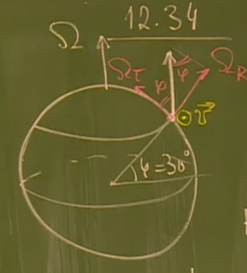 12.34
Ω
Ω_τ φ φ Ω_R
v⃗
φ=30°